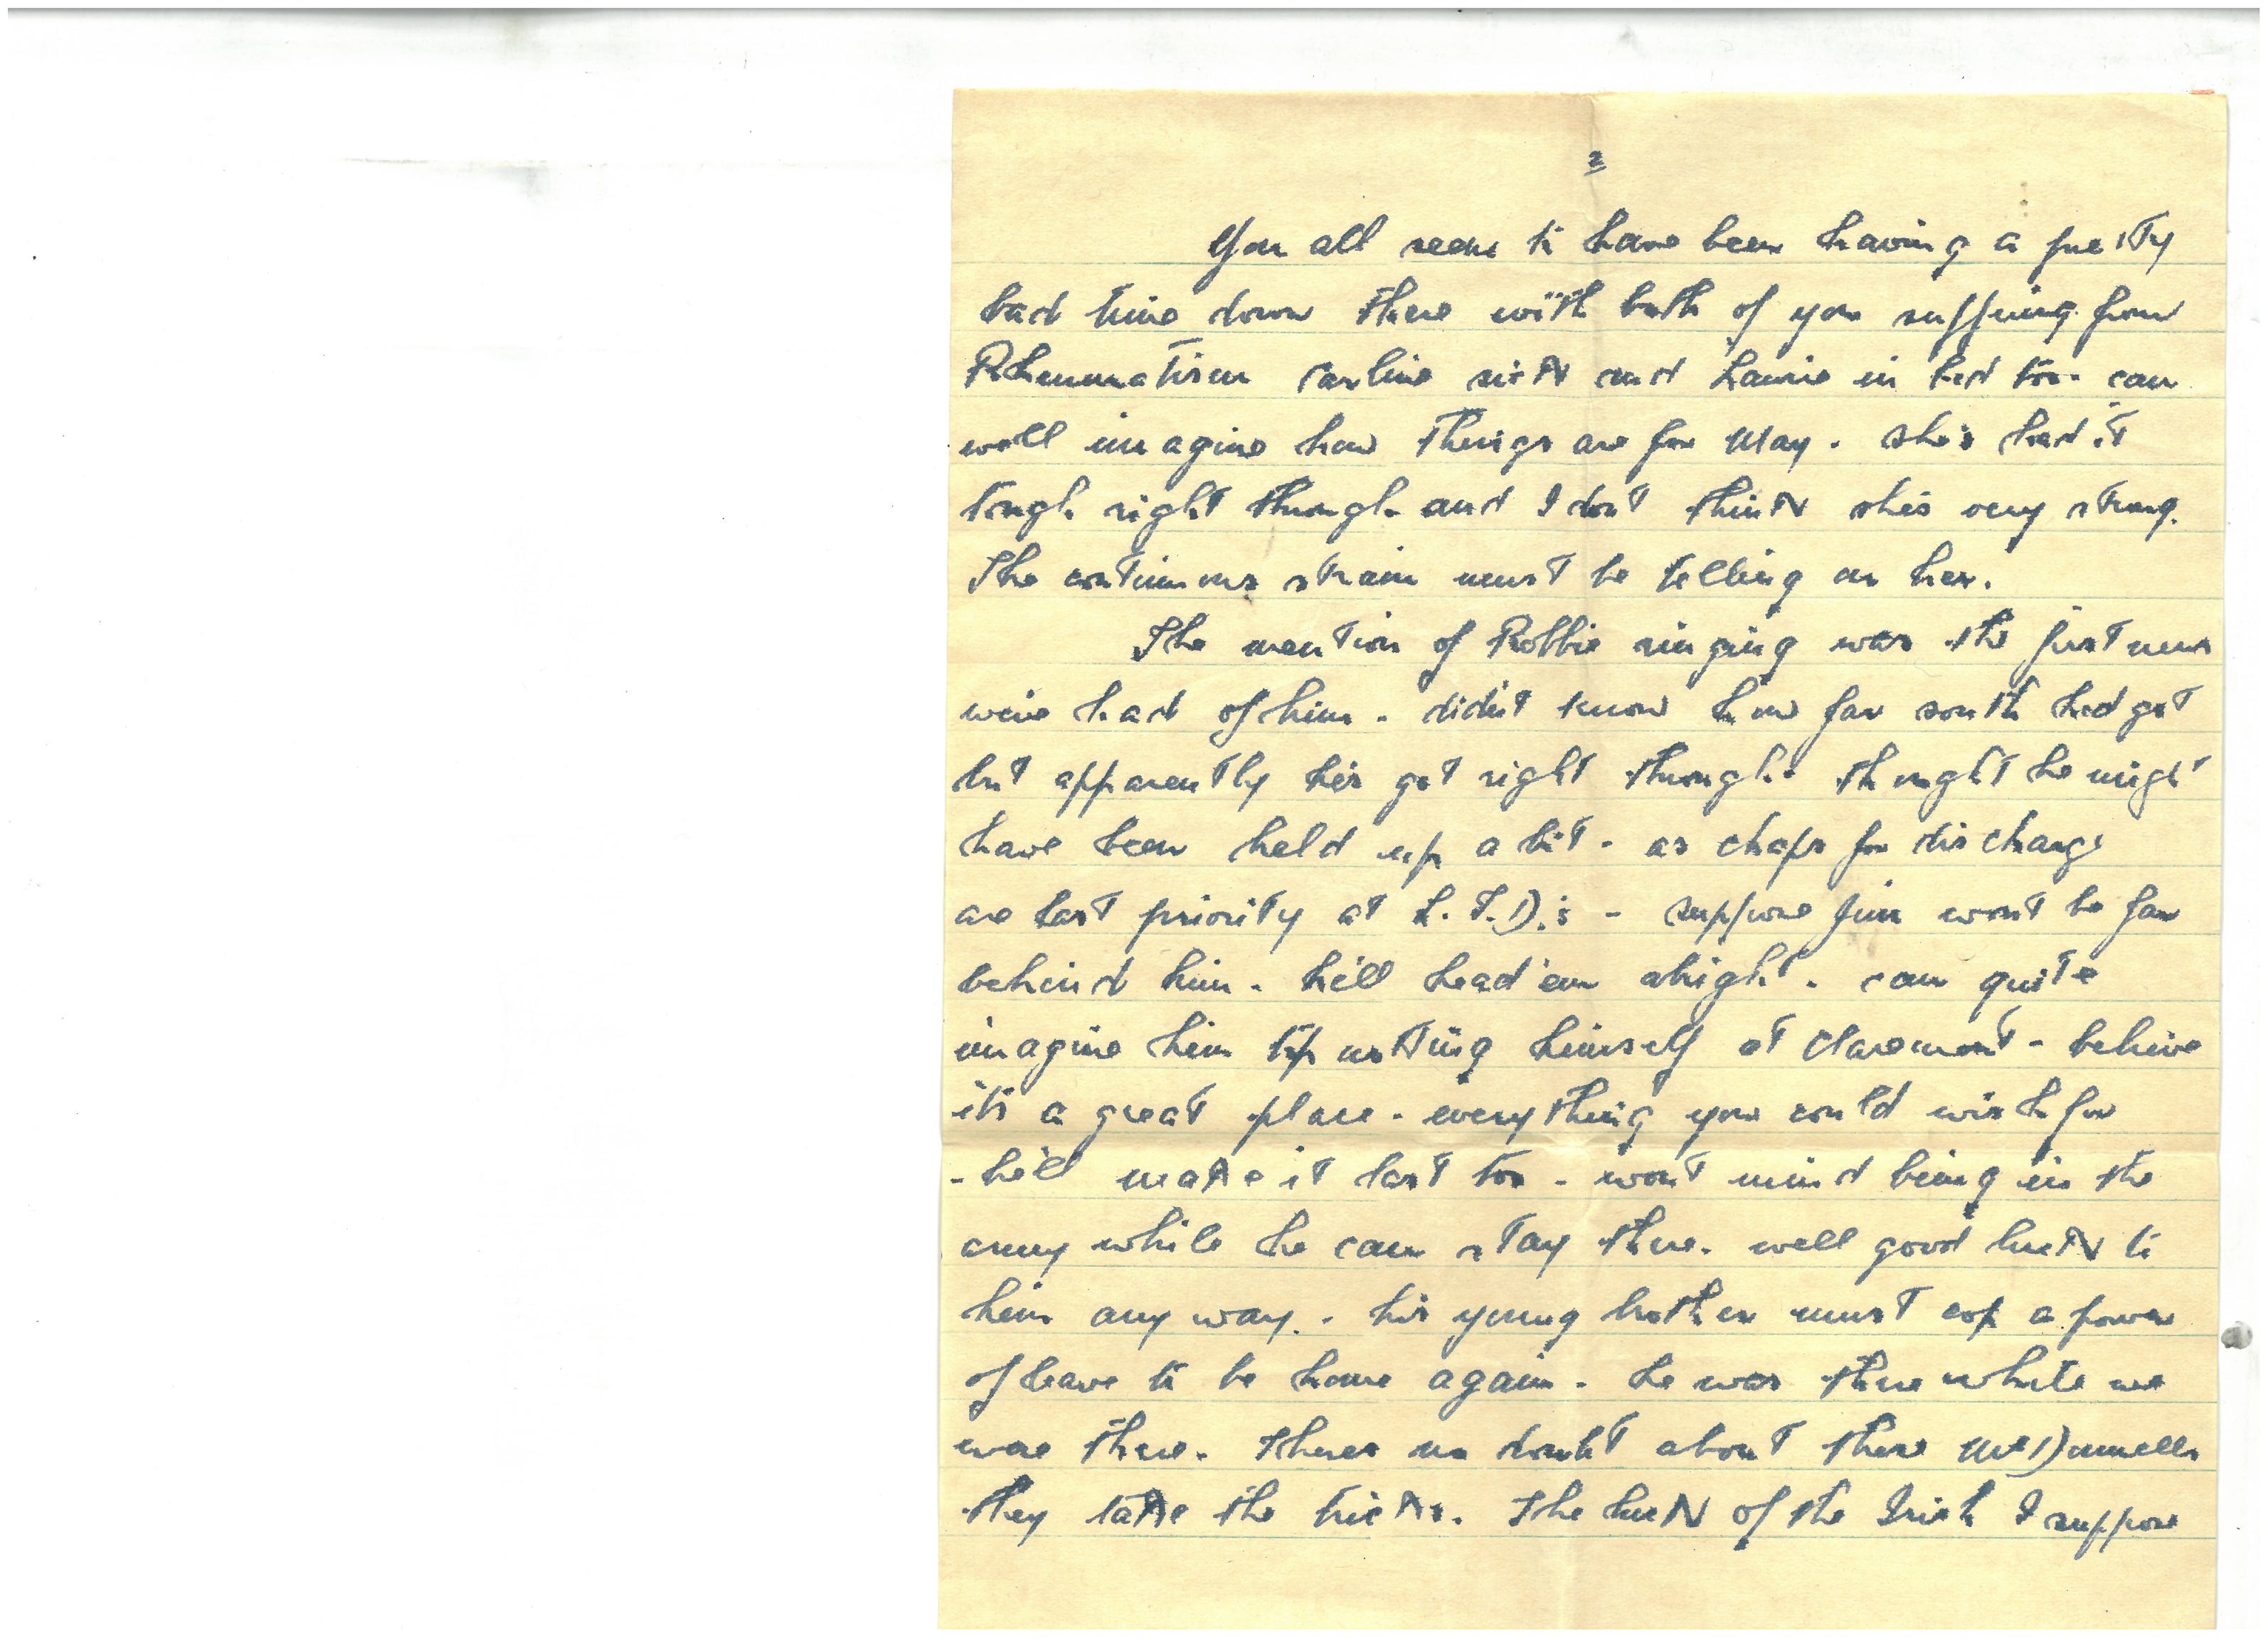 2
You all seem to have been having a pretty
bad time down there with both of you suffering from
Rheumatism Carline sick and Laurie in bed too. can
well imagine how things are for May. she's had it
tough right through and I dont think shes very strong.
The continuous strain must be telling on her.
The mention of Robbie ringing was the first news
weve had of him - didn't know how far south hed got
but apparently he's got right through. thought he might
have been held up a bit - as chaps for discharge
are last priority at L.T.D.'s - suppose Jim wont be far
behind him - he'll head 'em alright. can quite
imagine him himself at Claremont - believe
its a great place - everything you could wish for
- he'll make it last too - wont mind being in the
army while he can stay there. well good luck to
him anyway. - his young brother must cop a power
of leave to be home again - he was there while we
were there. Theres no doubt about these McDonnells
they take the tricks. The luck of the Irish I suppose